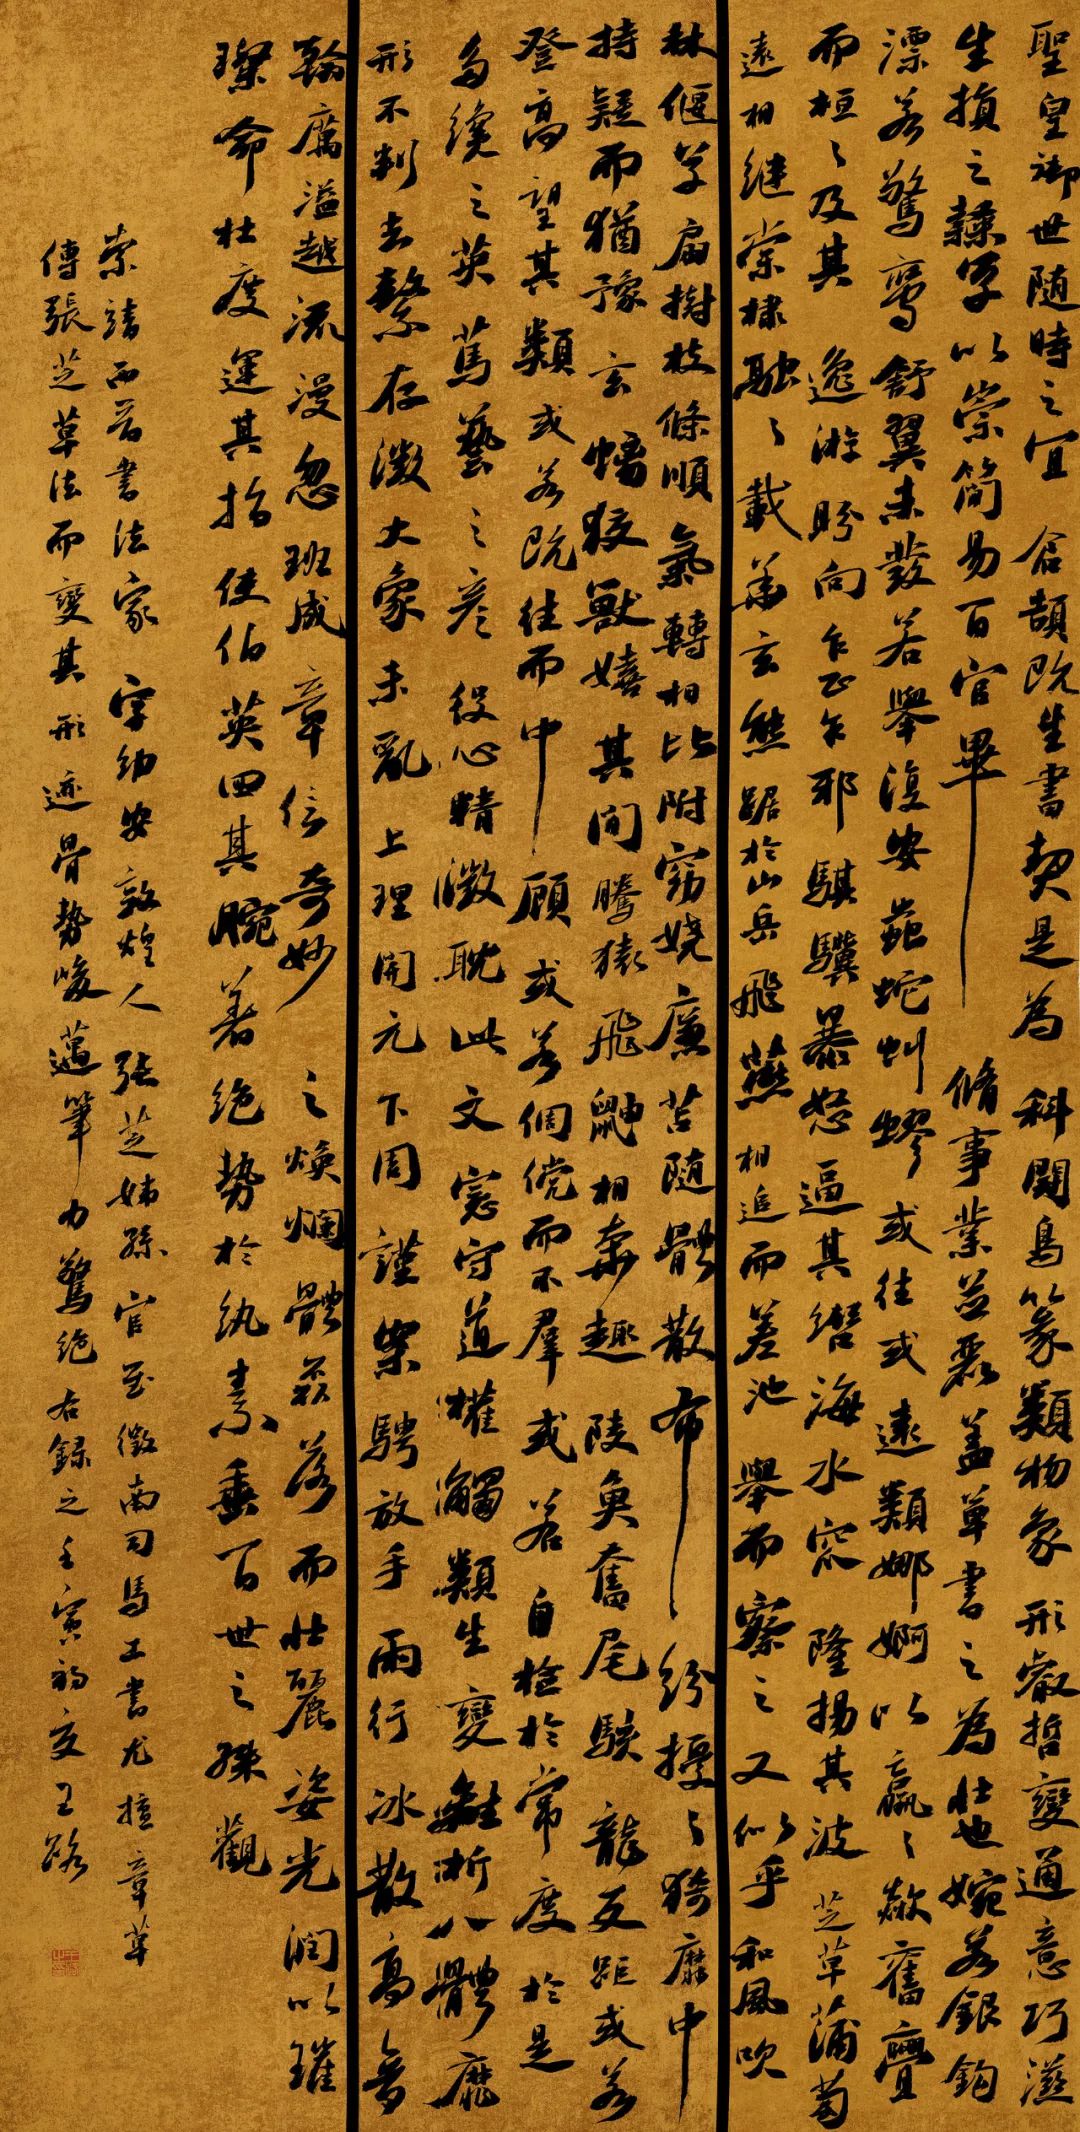 聖皇御世随時之宜倉頡既生書契是為科闘鳥篆類物象形叡哲變通意巧滋
生損之隷草以崇簡易百官畢脩事業並麗盖草書之為壮也婉若銀鈎
漂若驚鸞舒翼未發若舉復安蟲蛇虯蟉或往或還類婀娜以羸羸欻奮亹
而桓〻及其逸游盻向乍正乍邪騏驥暴怒逼其轡海水窊隆揚其波芝草蒲萄
還相继棠棣融〻載其華玄熊踞於山岳飛燕相追而差池舉而察之又似乎和風吹
林偃草扇樹枝條順氣轉相比附窈娆廉苫随體散布紛擾〻猗靡中
持疑而猶豫玄螭狡獸嬉其間騰猿飛鼬相奔趣陵魚奮尾駭龍反距或若
登高望其類或若既往而中顧或若倜傥而不羣或若自檢於常度於是
多纔之英篤藝之彦役心精微耽此文窓守道權觸類生變離析八體靡
形不判去繁存微大象未亂上理開元下周謹案騁放手雨行冰散高音
翰厲溢越流漫忽班成章信奇妙之焕爛體磊落而壮麗姿光润以璀
璨命杜度運其指使伯英回其腕著絶勢於纨素垂百世之殊觀
索靖西晋書法家字幼安敦煌人張芝姊孫官至徵南司馬工書尤擅章草
傳張芝草法而變其形迹骨勢峻邁筆力驚絶右録之壬寅初夏王路